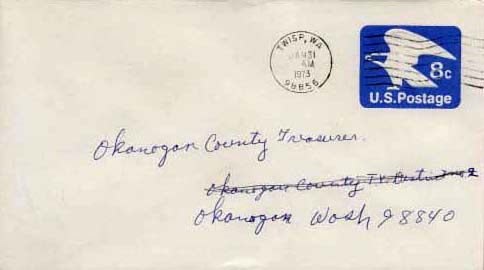 TWISP, WA
JAN 31
AM
1973
98856
8c
U.S. Postage
Okanogan County Treasurer.
Okanogan County
Okanogan Wash 98840